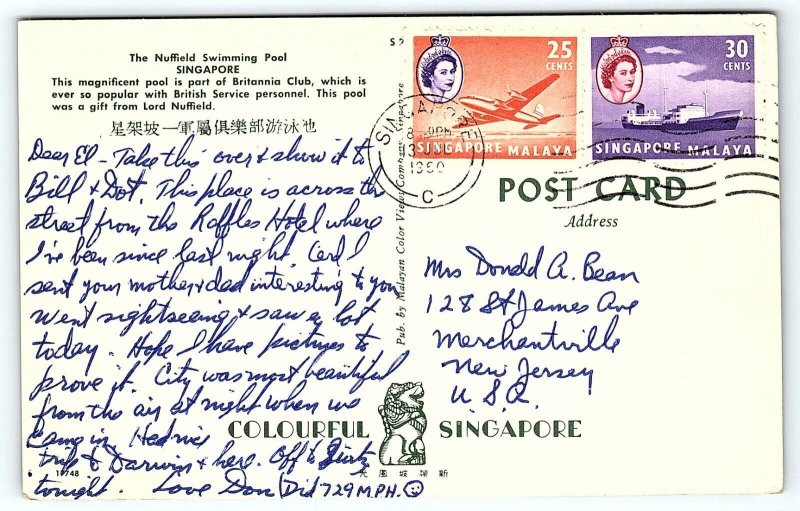 The Nuffield Swimming Pool
SINGAPORE
This magnificent pool is part of Britannia Club, which is
ever so popular with British Service personnel. This pool
was a gift from Lord Nuffield.
星架坡一軍屬俱樂部游泳池
Dear El - Take this over & show it to
Bill & Dot. This place is across the
street from the Raffles Hotel where
I've been since last night. Card I
sent your mother & dad interesting to you
Went sightseeing & saw a lot
today. Hope I have pictures to
prove it. City was most beautiful
from the air at night when we
came in. Had nice
trip to Darwin & here. Off to
tonight. Love Don (Did 729 M.P.H. ☺
Pub. by Malayan Color Views Company, Singapore
25
CENTS
SINGAPORE MALAYA
30
CENTS
SINGAPORE MALAYA
SINGAPORE
1960
C
POST CARD
Address
Mrs Donald A. Bean
128 St James Ave
Merchantville
New Jersey
U.S.A.
COLOURFUL SINGAPORE